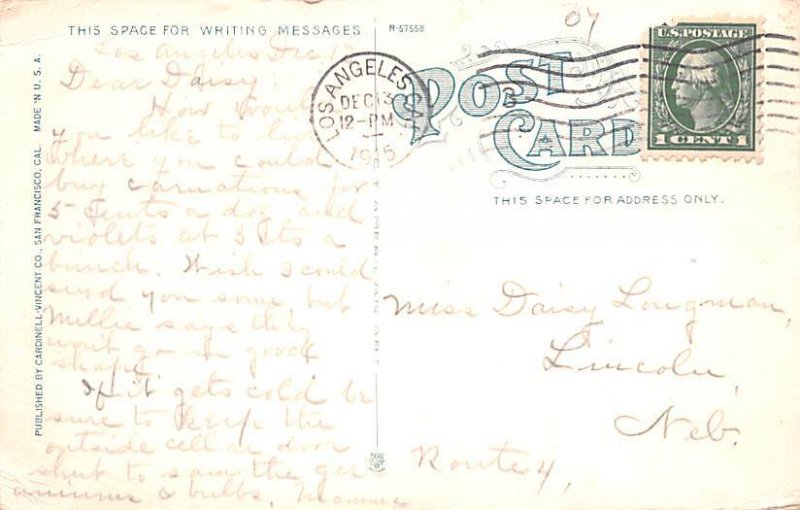 THIS SPACE FOR WRITING MESSAGES
R-57558
07
Los Angeles Dec 12
Dear Daisy
How would
you like to live
where you could
buy carnations for
5 cents a doz and
violets at 3 cts a
bunch. Wish I could
send you some but
Millie says they
won't go in good
shape.
If it gets cold be
sure to keep the
outside cellar door
shut to save the ger
aniums & bulbs, Mamma
PUBLISHED BY CARDINELL-VINCENT CO., SAN FRANCISCO, CAL. MADE IN U. S. A.
LOS ANGELES, CAL.
DEC 13
12-PM
1915
POST
CARD
U.S.POSTAGE
1 CENT 1
THIS SPACE FOR ADDRESS ONLY.
Miss Daisy Longman,
Lincoln,
Neb.
Route 4,